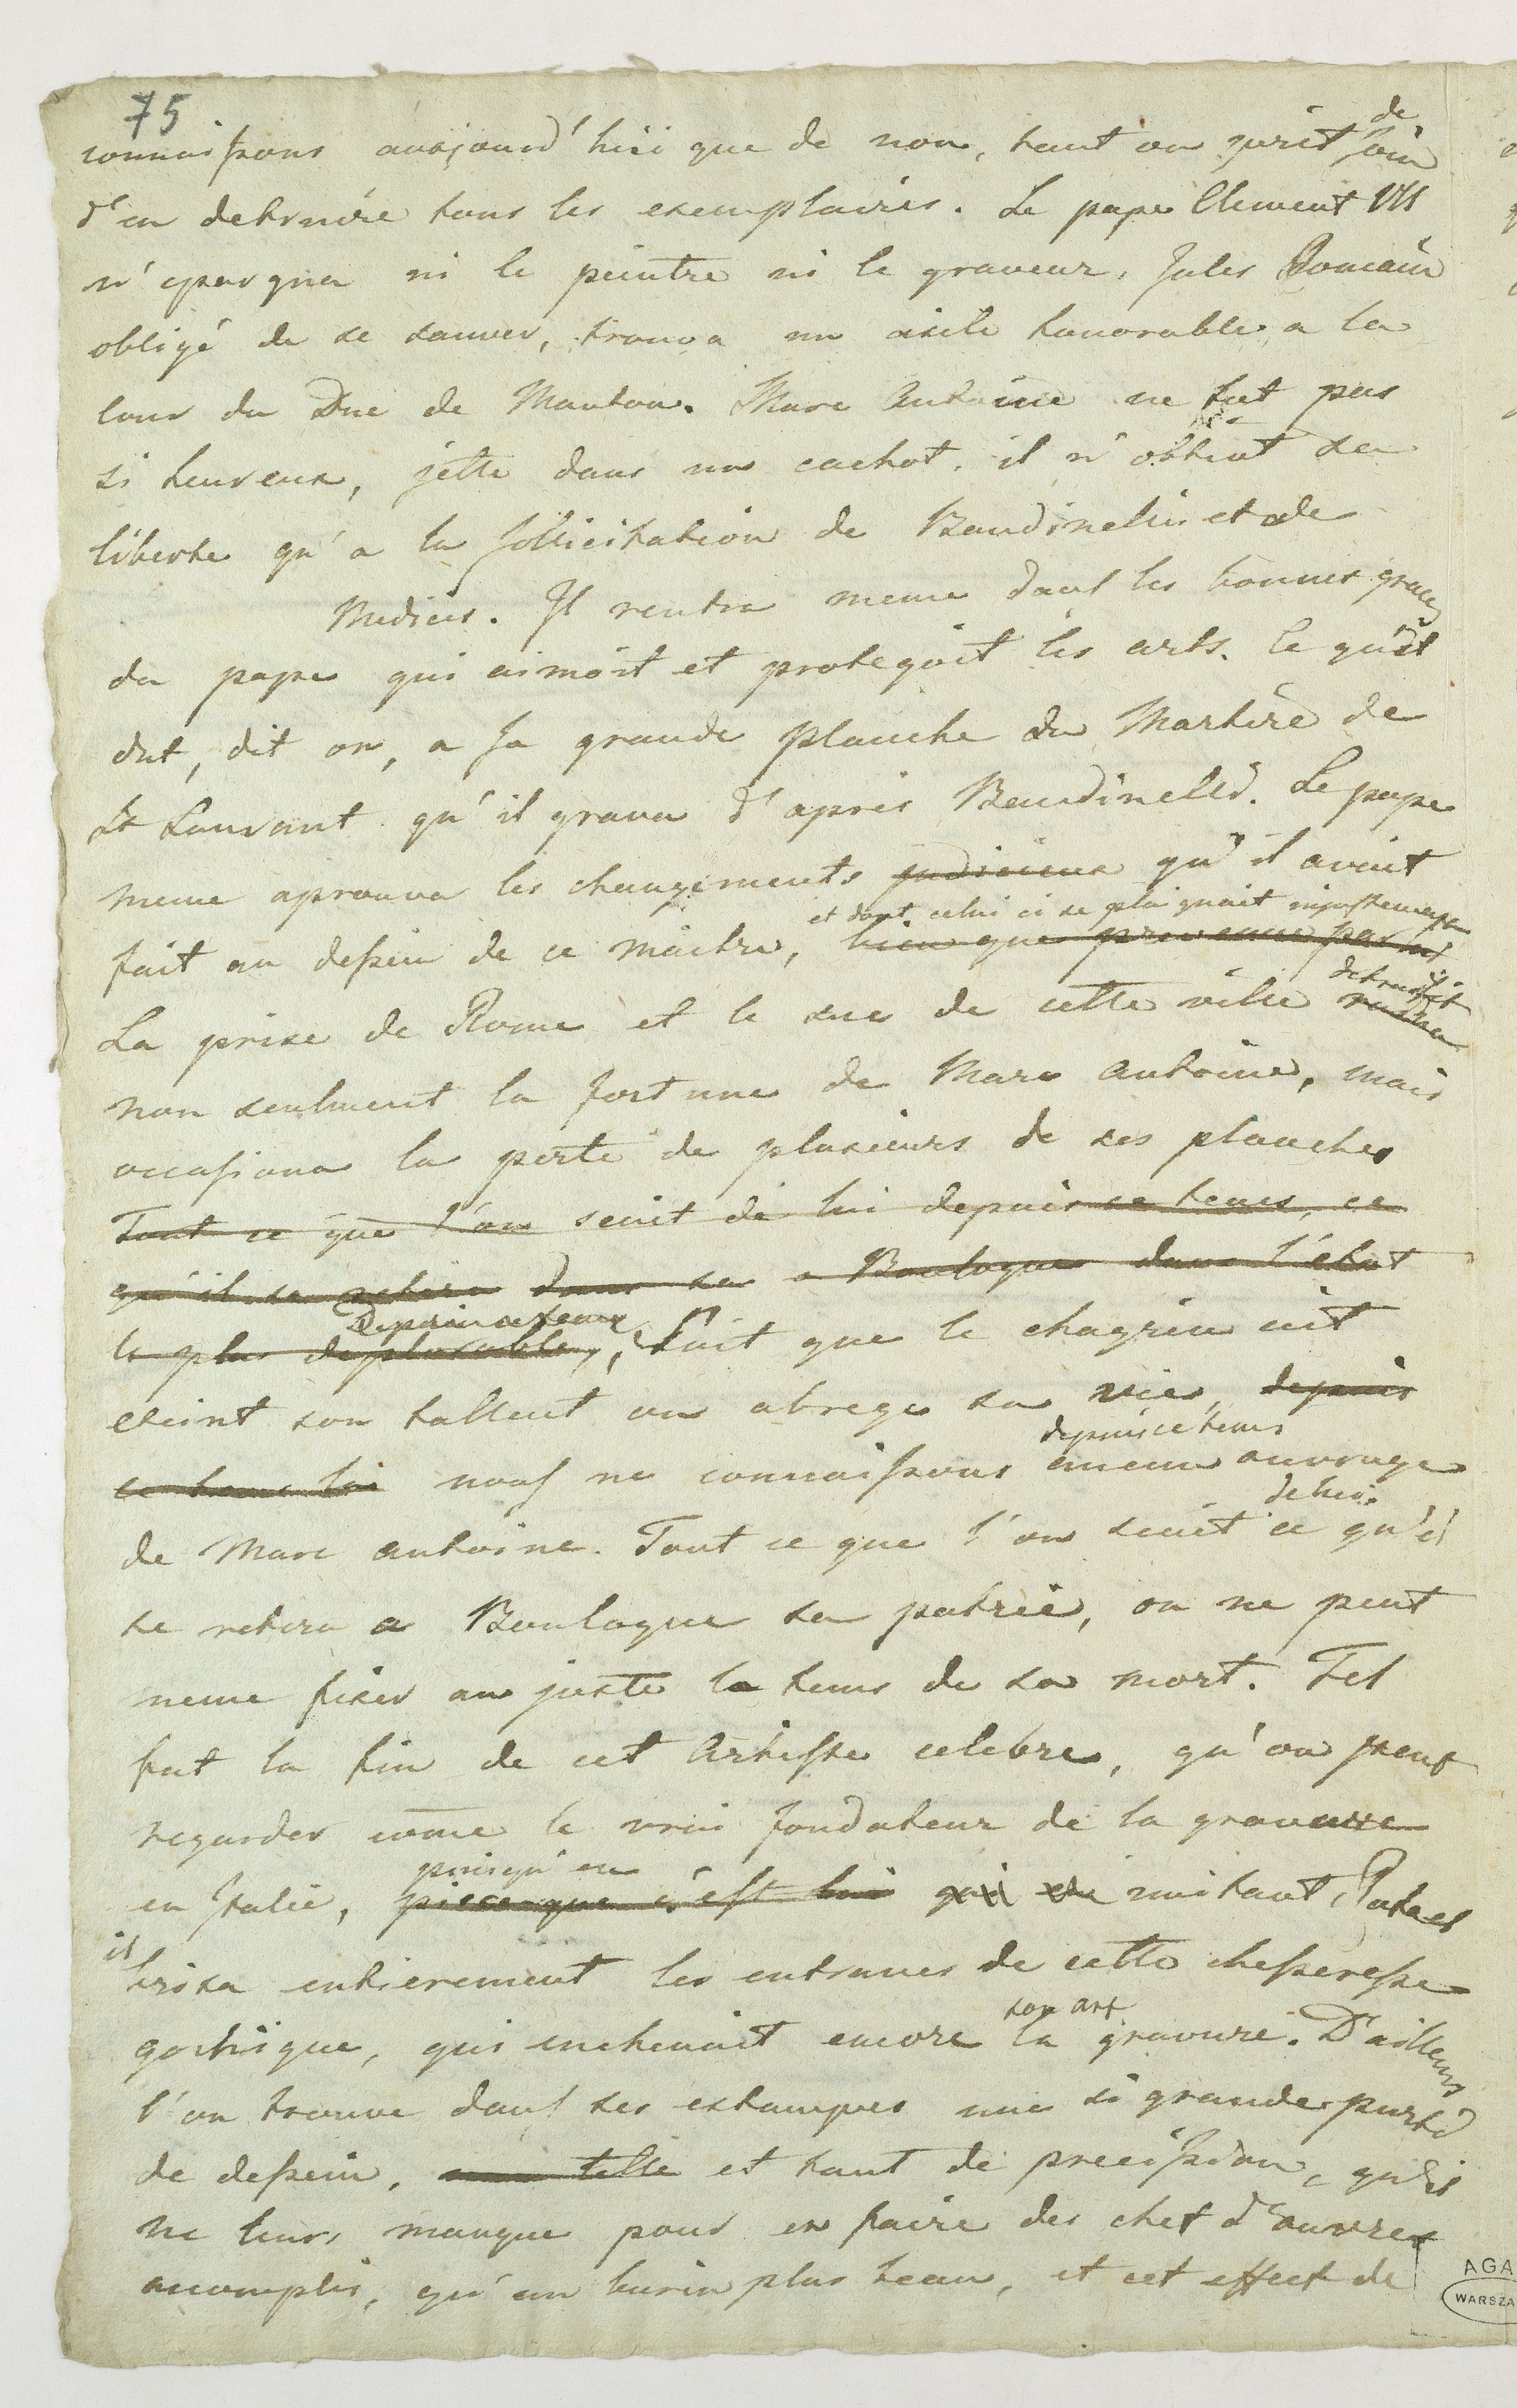 75
connaissons aujourd'hui que de nom, tant on prit de soin
d'en detruire tous les exemplaires. Le pape Clement VII
n'epargna ni le peintre ni le graveur, Jules Romain
obligé de se sauver, trouva un asile honorable a la
cour du Duc de Mantou. Marc Antoine ne fut pas
si heureux, jette dans un cachot, il n'obtint sa
liberte qu'a la sollicitation de Bandinelli et de
Medicis. Il rentra meme dans les bonnes graces
du pape qui aimoit et protegoit les arts. Ce qu'il
dut, dit on, a sa grande planche du Martire de
St Laurant qu'il grava d'apres Bandinelli. Le pape
meme aprouva les changements judicieux qu'il avait
et dont celui ci se plaignait injustement
fait au dessin de ce maitre, bien que prevenu par
La prise de Rome et le sac de cette ville detruisit
non seulment la fortune de Marc Antoine, mais
occasiona la perte de plusieurs de ses planches
Tout ce que l'on scait de lui depuis ce tems, ce
qu'il se retira dans sa a Boulogne dans l'etat
Depuis ce tems
le plus deplorable, Soit que le chagrin eut
eteint son tallent ou abrege sa vie, depuis
depuis ce tems
ce tems la nous ne connaissons aucun ouvrage
de lui.
de Marc Antoine. Tout ce que l'on scait ce qu'il
se retira a Boulogne sa patrie, on ne peut
meme fixer au juste le tems de sa mort. Tel
fut la fin de cet Artiste celebre, qu'on peut
regarder come le vrai fondateur de la gravure
puisqu'en
en Italie, puisque c'est lui qui en imitant
il
brisa entierement les entraves de cette secheresse
son art
gothique, qui enchenait encore la gravure. D'ailleurs
l'on trouve dans ses estampes une si grande purté
de dessein, une telle et tant de precission, qu'il
ne leurs manque pour en faire des chef d'ouvres
accomplis, qu'un burin plus beau, et cet effect de
AGA
WARSZA